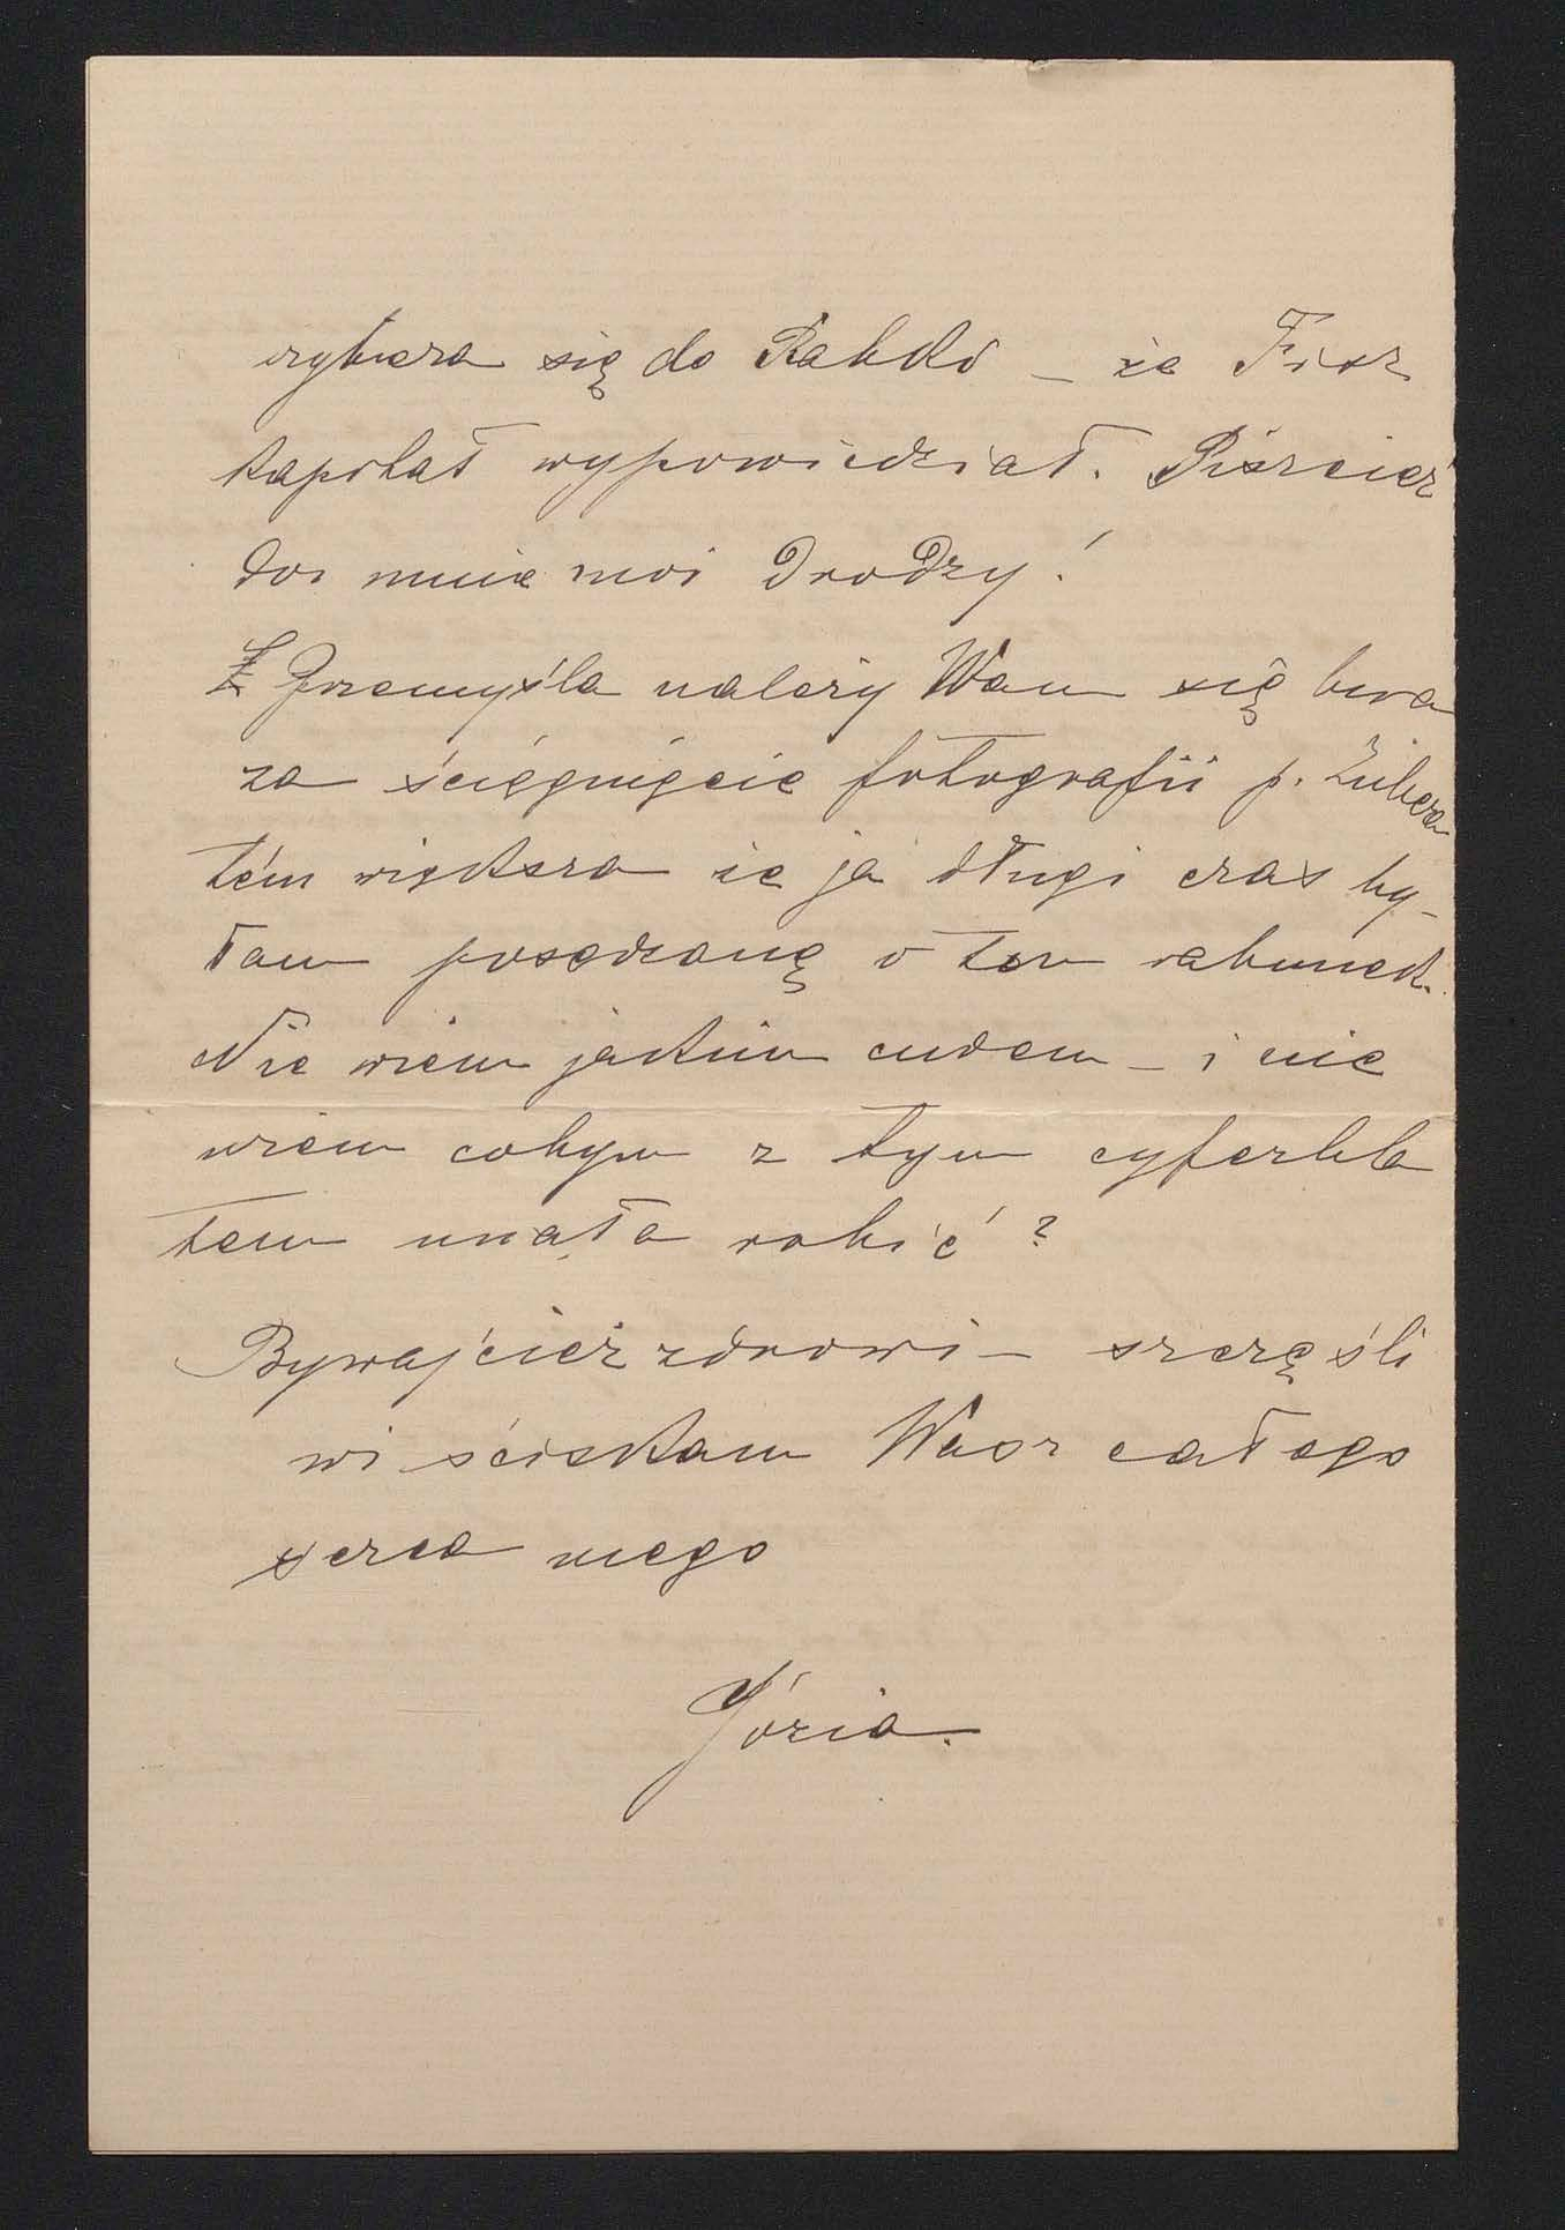 wybiera się do Rabki – że Fior
kapitał wypowiedział. Piszcież
do mnie moi Drodzy!
Z Przemyśla należy Wam się bura
za ściągnięcie fotografii p. Zubera
tém większa że ja długi czas by-
łam posądzaną o ten rabunek.
Nie wiem jakim cudem – i nie
wiem cobym z tym cyferbla
tem miała robić?
Bywajcież zdrowi – szczęśli
wi ściskam Was z całego
serca mego
Józia.